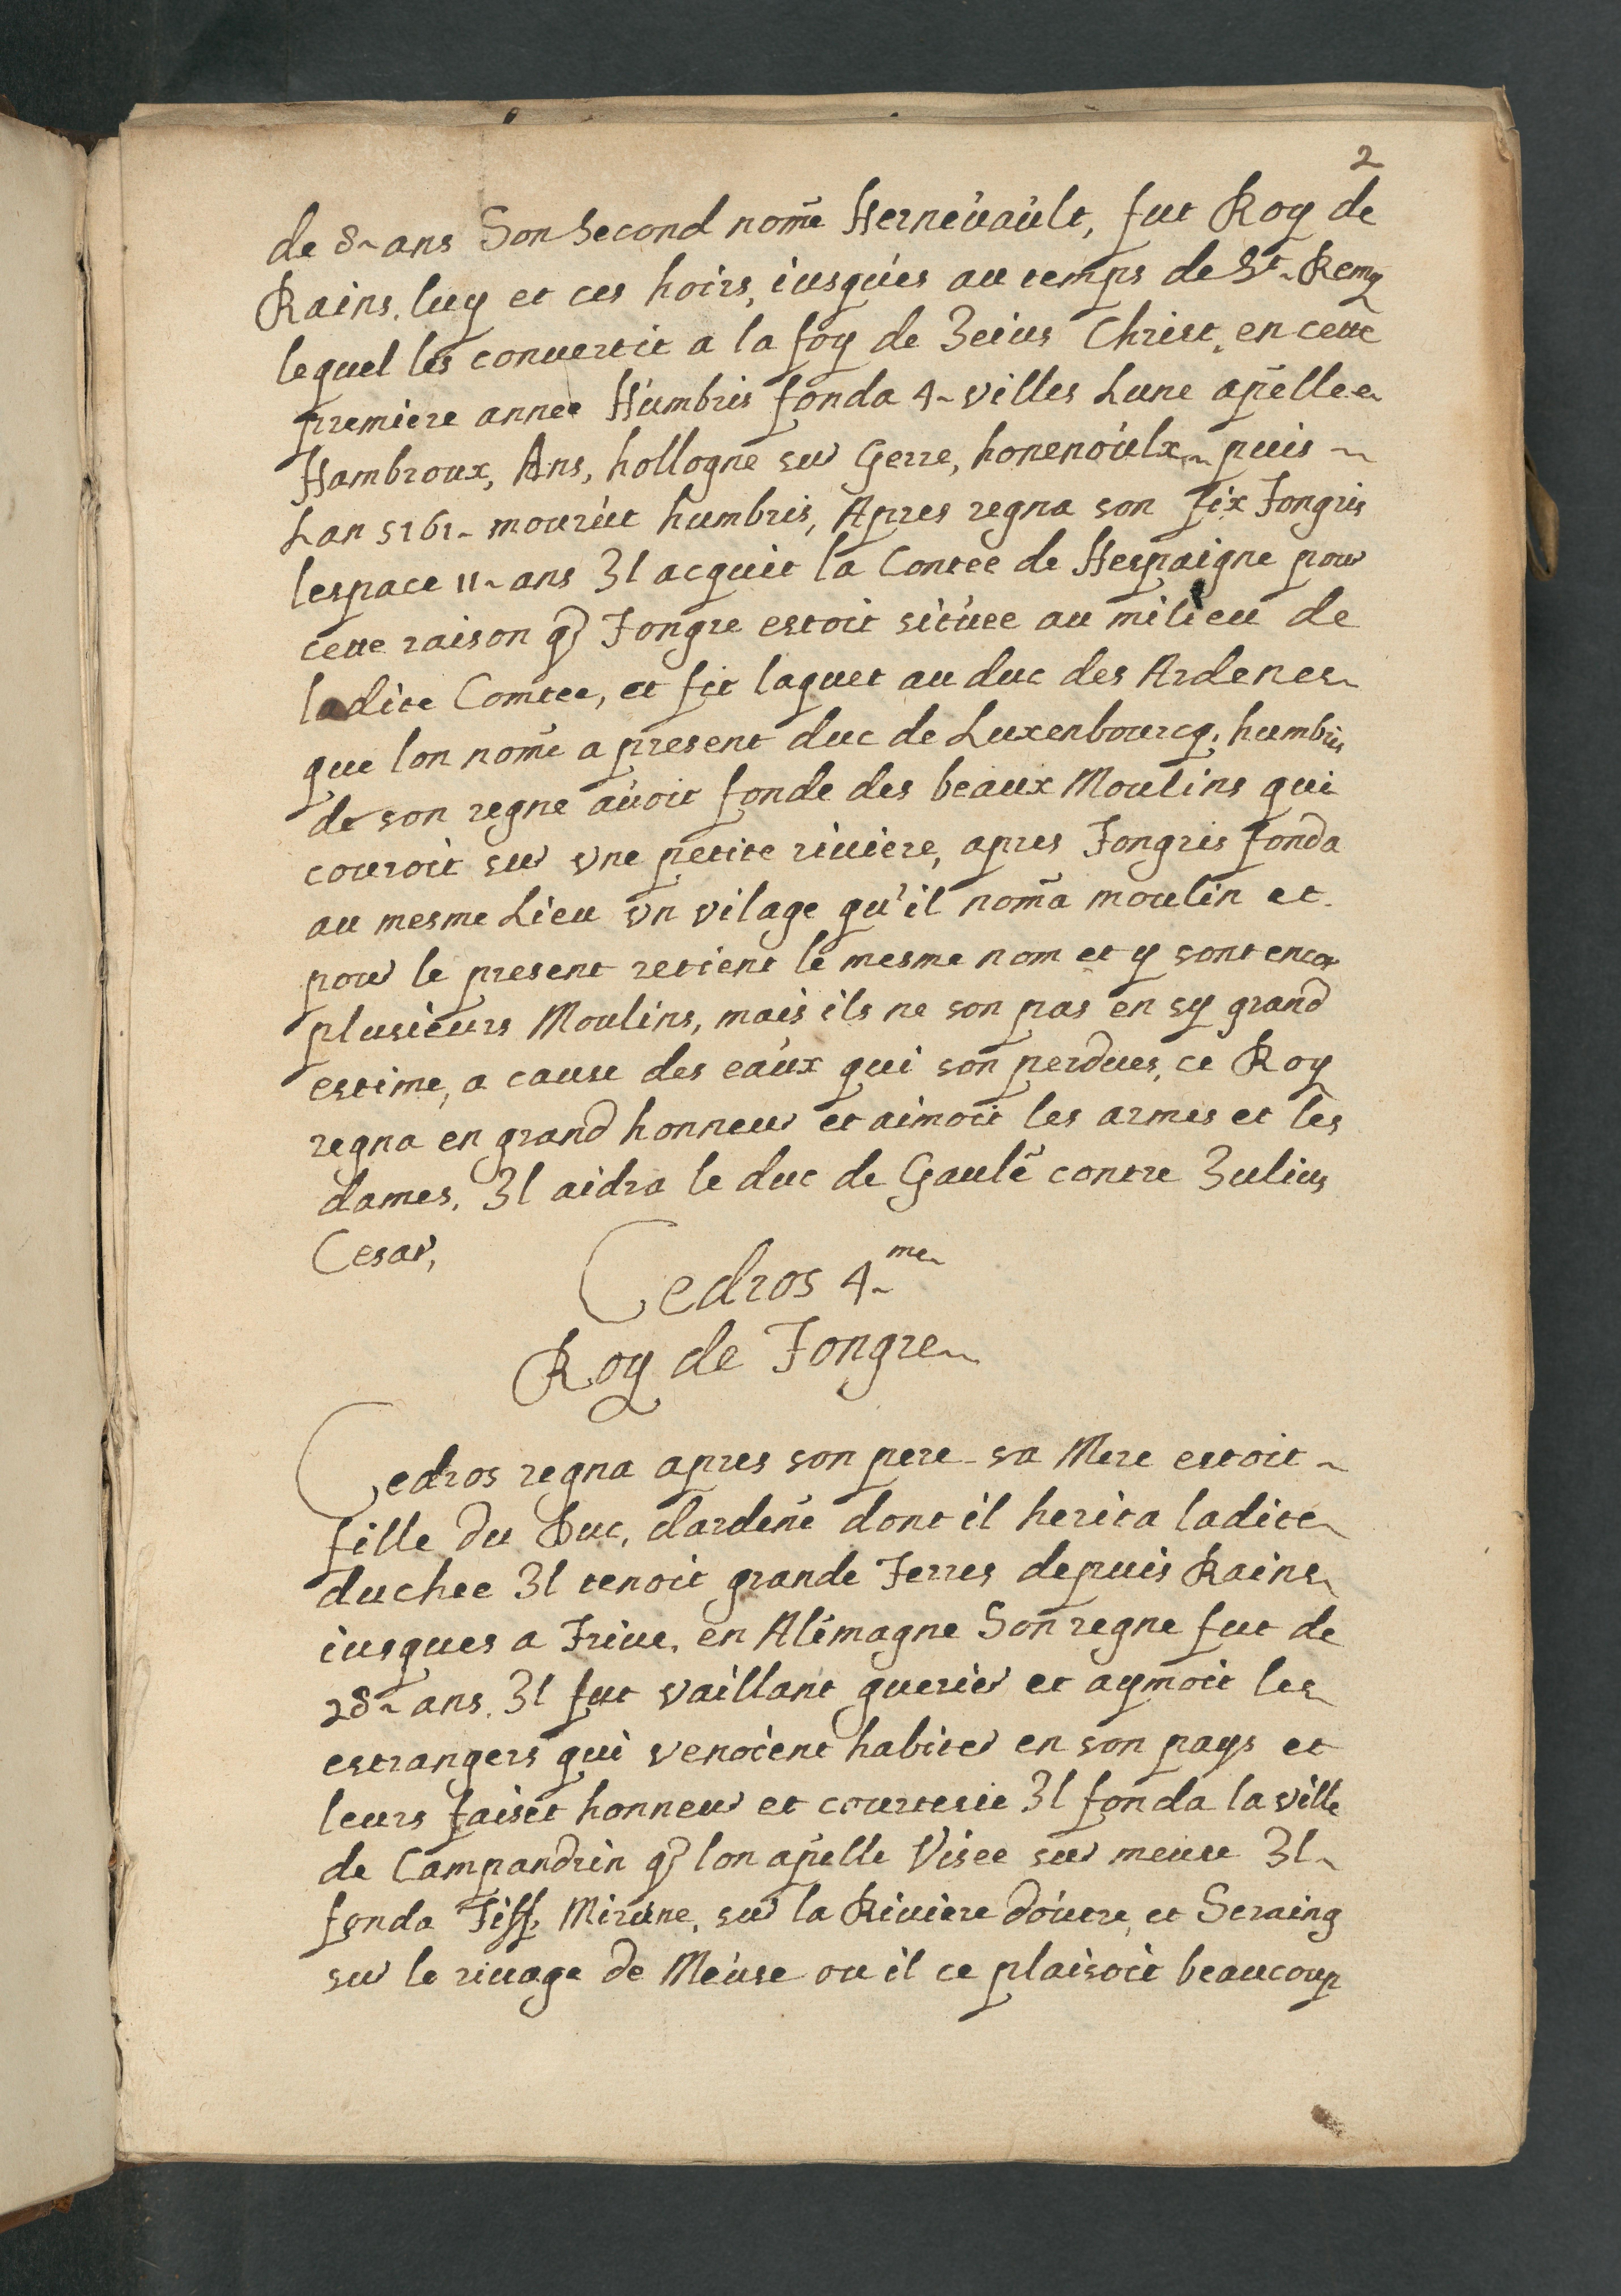 2
de 8 ans Son Second nomé Hernevault, fut Roy de
Rains, luy et ces hoirs, iusques au temps de St Remy
lequel les conuertit a la foy de Jesus Christ, en cette
premiere année Humbris fonda 4 villes Lune apellee
Hambroux, Ans, hollogne sur Gerre, honenoulx puis
Lan 5161 mourut humbris, Apres regna son fix Tongris
lespace 11 ans Il acquit la Contee de Hespaigne pour
cette raison q̃ Tongre estoit située au milieu de
ladite Comtee, et fit laquet au duc des Ardenes
que lon nomē a present duc de Luxenbourcq, humbris
de son regne auoit fonde des beaux Moulins qui
couroit sur vne petite riuiere, apres Tongris fonda
au mesme Lieu vn vilage qu'il nom̃a moulin et
pour le present retient le mesme nom et y sont encor
plusieurs Moulins, mais ils ne son pas en sy grand
estime, a cause des eaux qui son perdues, ce Roy
regna en grand honneur et aimoit les armes et les
dames, Il aidra le duc de Gaulē contre Julius
Cesar,
Cedros 4me
Roy de Tongre
Cedros regna apres son pere sa Mere estoit
fille du Duc, dardenē dont il herita ladite
duchee Il tenoit grande Terres depuis Rains
iusques a Triue, en Alemagne Son regne fut de
28 ans, Il fut vaillant guerier et aymoit les
estrangers qui venoient habiter en son pays et
leurs faisit honneur et courtesie Il fonda la ville
de Campandrin q̃ lon apelle Visee sur meuse Il
fonda Tiff, Mirune, sur la Riuiere doutre, et Seraing
sur le riuage de Meuse ou il ce plaisoit beaucoup